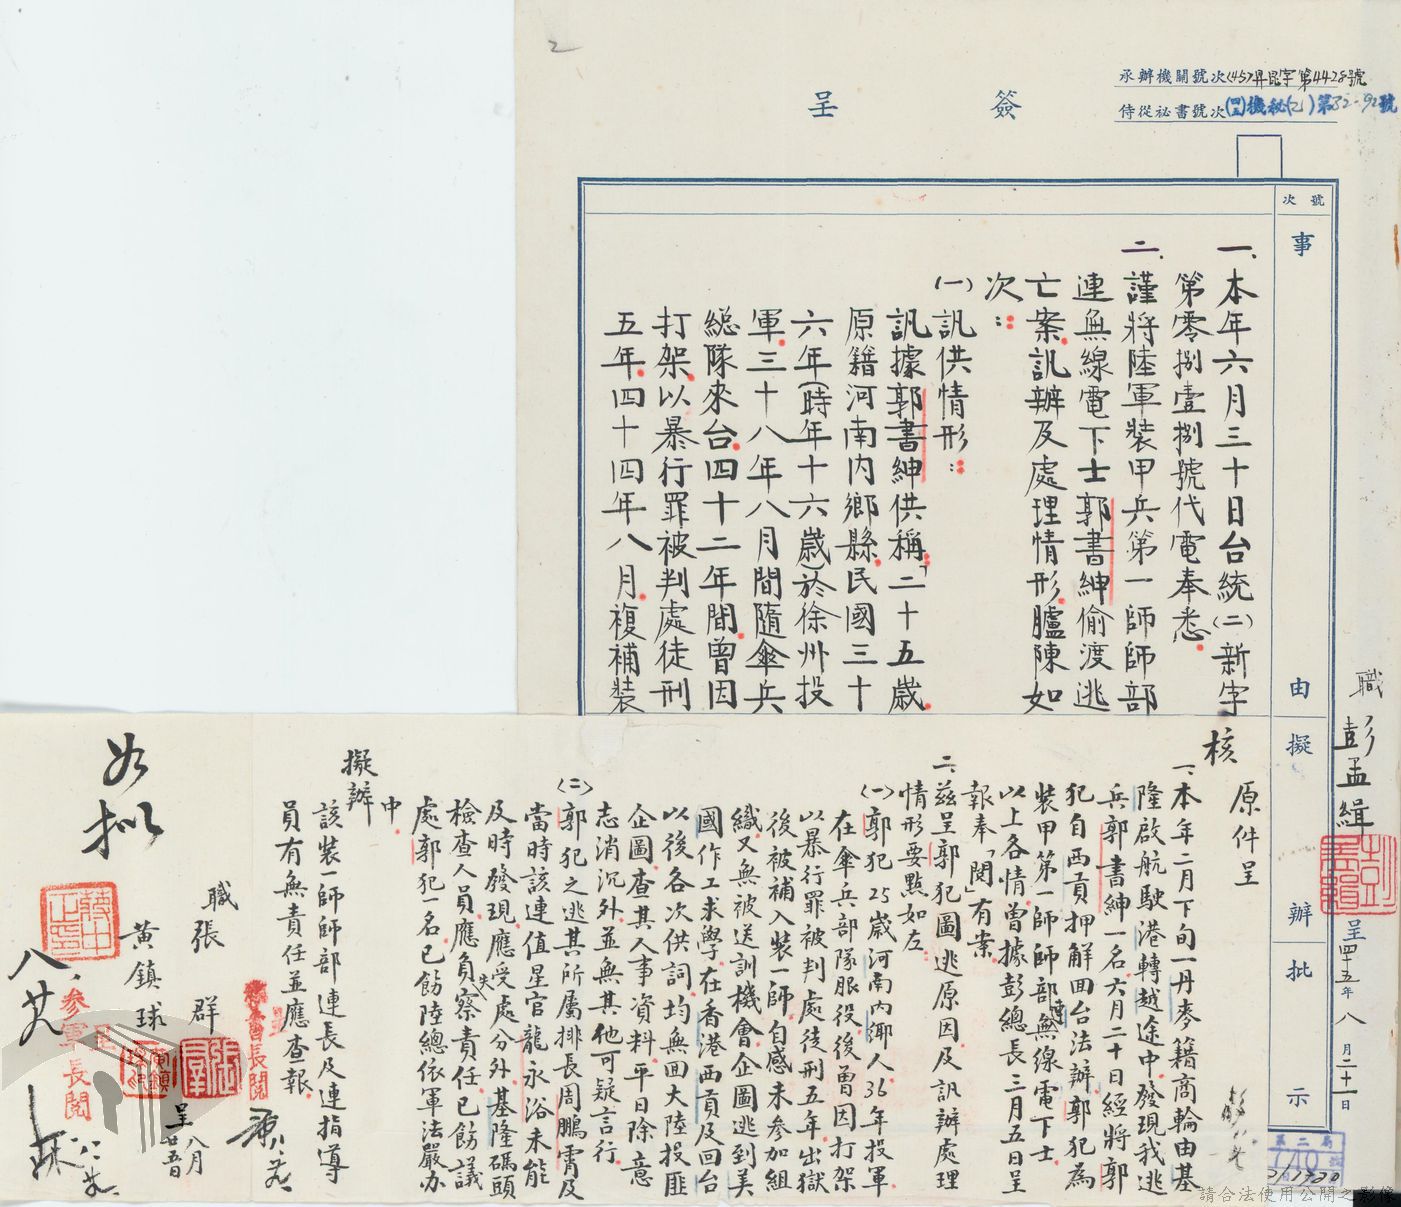 簽呈
承辦機關號次(45)昇昆字第4428號
侍從祕書號次(四五)機秘(乙)第32-92號
號次
事由擬辦批示
一、本年六月三十日台統(二)新字
第零捌壹捌號代電奉悉。
二、謹將陸軍裝甲兵第一師師部
連無線電下士郭書紳偷渡逃
亡案訊辦及處理情形,臚陳如
次:
(一)訊供情形:
訊據郭書紳供稱:「二十五歲,
原籍河南內鄉縣,民國三十
六年(時年十六歲)於徐州投
軍,三十八年八月間隨傘兵
總隊來台,四十二年間曾因
打架,以暴行罪被判處徒刑
五年,四十四年八月,複補裝
職彭孟緝
呈四十五年八月二十一日
核
原件呈
一、本年二月下旬一丹麥籍商輪由基
隆啟航駛港轉越途中發現我逃
兵郭書紳一名,六月二十日經將郭
犯自西貢押解回台法辦,郭犯為
裝甲第一師師部連無線電下士,
以上各情,曾據彭總長三月五日呈
報奉「閱」有案。
二、茲呈郭犯圖逃原因及訊辦處理
情形要點如左:
(一)郭犯25歲河南內鄉人,36年投軍,
在傘兵部隊服役後曾因打架
以暴行罪被判處徒刑五年,出獄
後被補入裝一師,自感未參加組
織,又無被送訓機會,企圖逃到美
國作工求學,在香港西貢及回台
以後各次供詞,均無回大陸投匪
企圖,查其人事資料,平日除意
志消沉外,並無其他可疑言行。
(二)郭犯之逃,其所屬排長周鵬霄及
當時該連值星官龍永浴未能
及時發現,應受處分外,基隆碼頭
檢查人員,應負失察責任,已飭議
處,郭犯一名,已飭陸總依軍法嚴办
中。
擬辦
該裝一師師部連長及連指導
員有無責任並應查報。
職張群
黃鎮球
呈八月廿五日
參軍長閱
如擬
八、廿八
第二局
740
請合法使用公開之影像